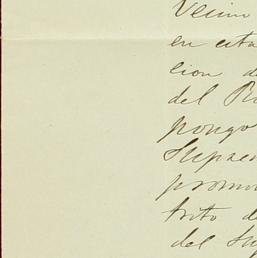 Vecino
en esta
cion de
del Pu
pongo
Suprem
promo
trito de
del Sup